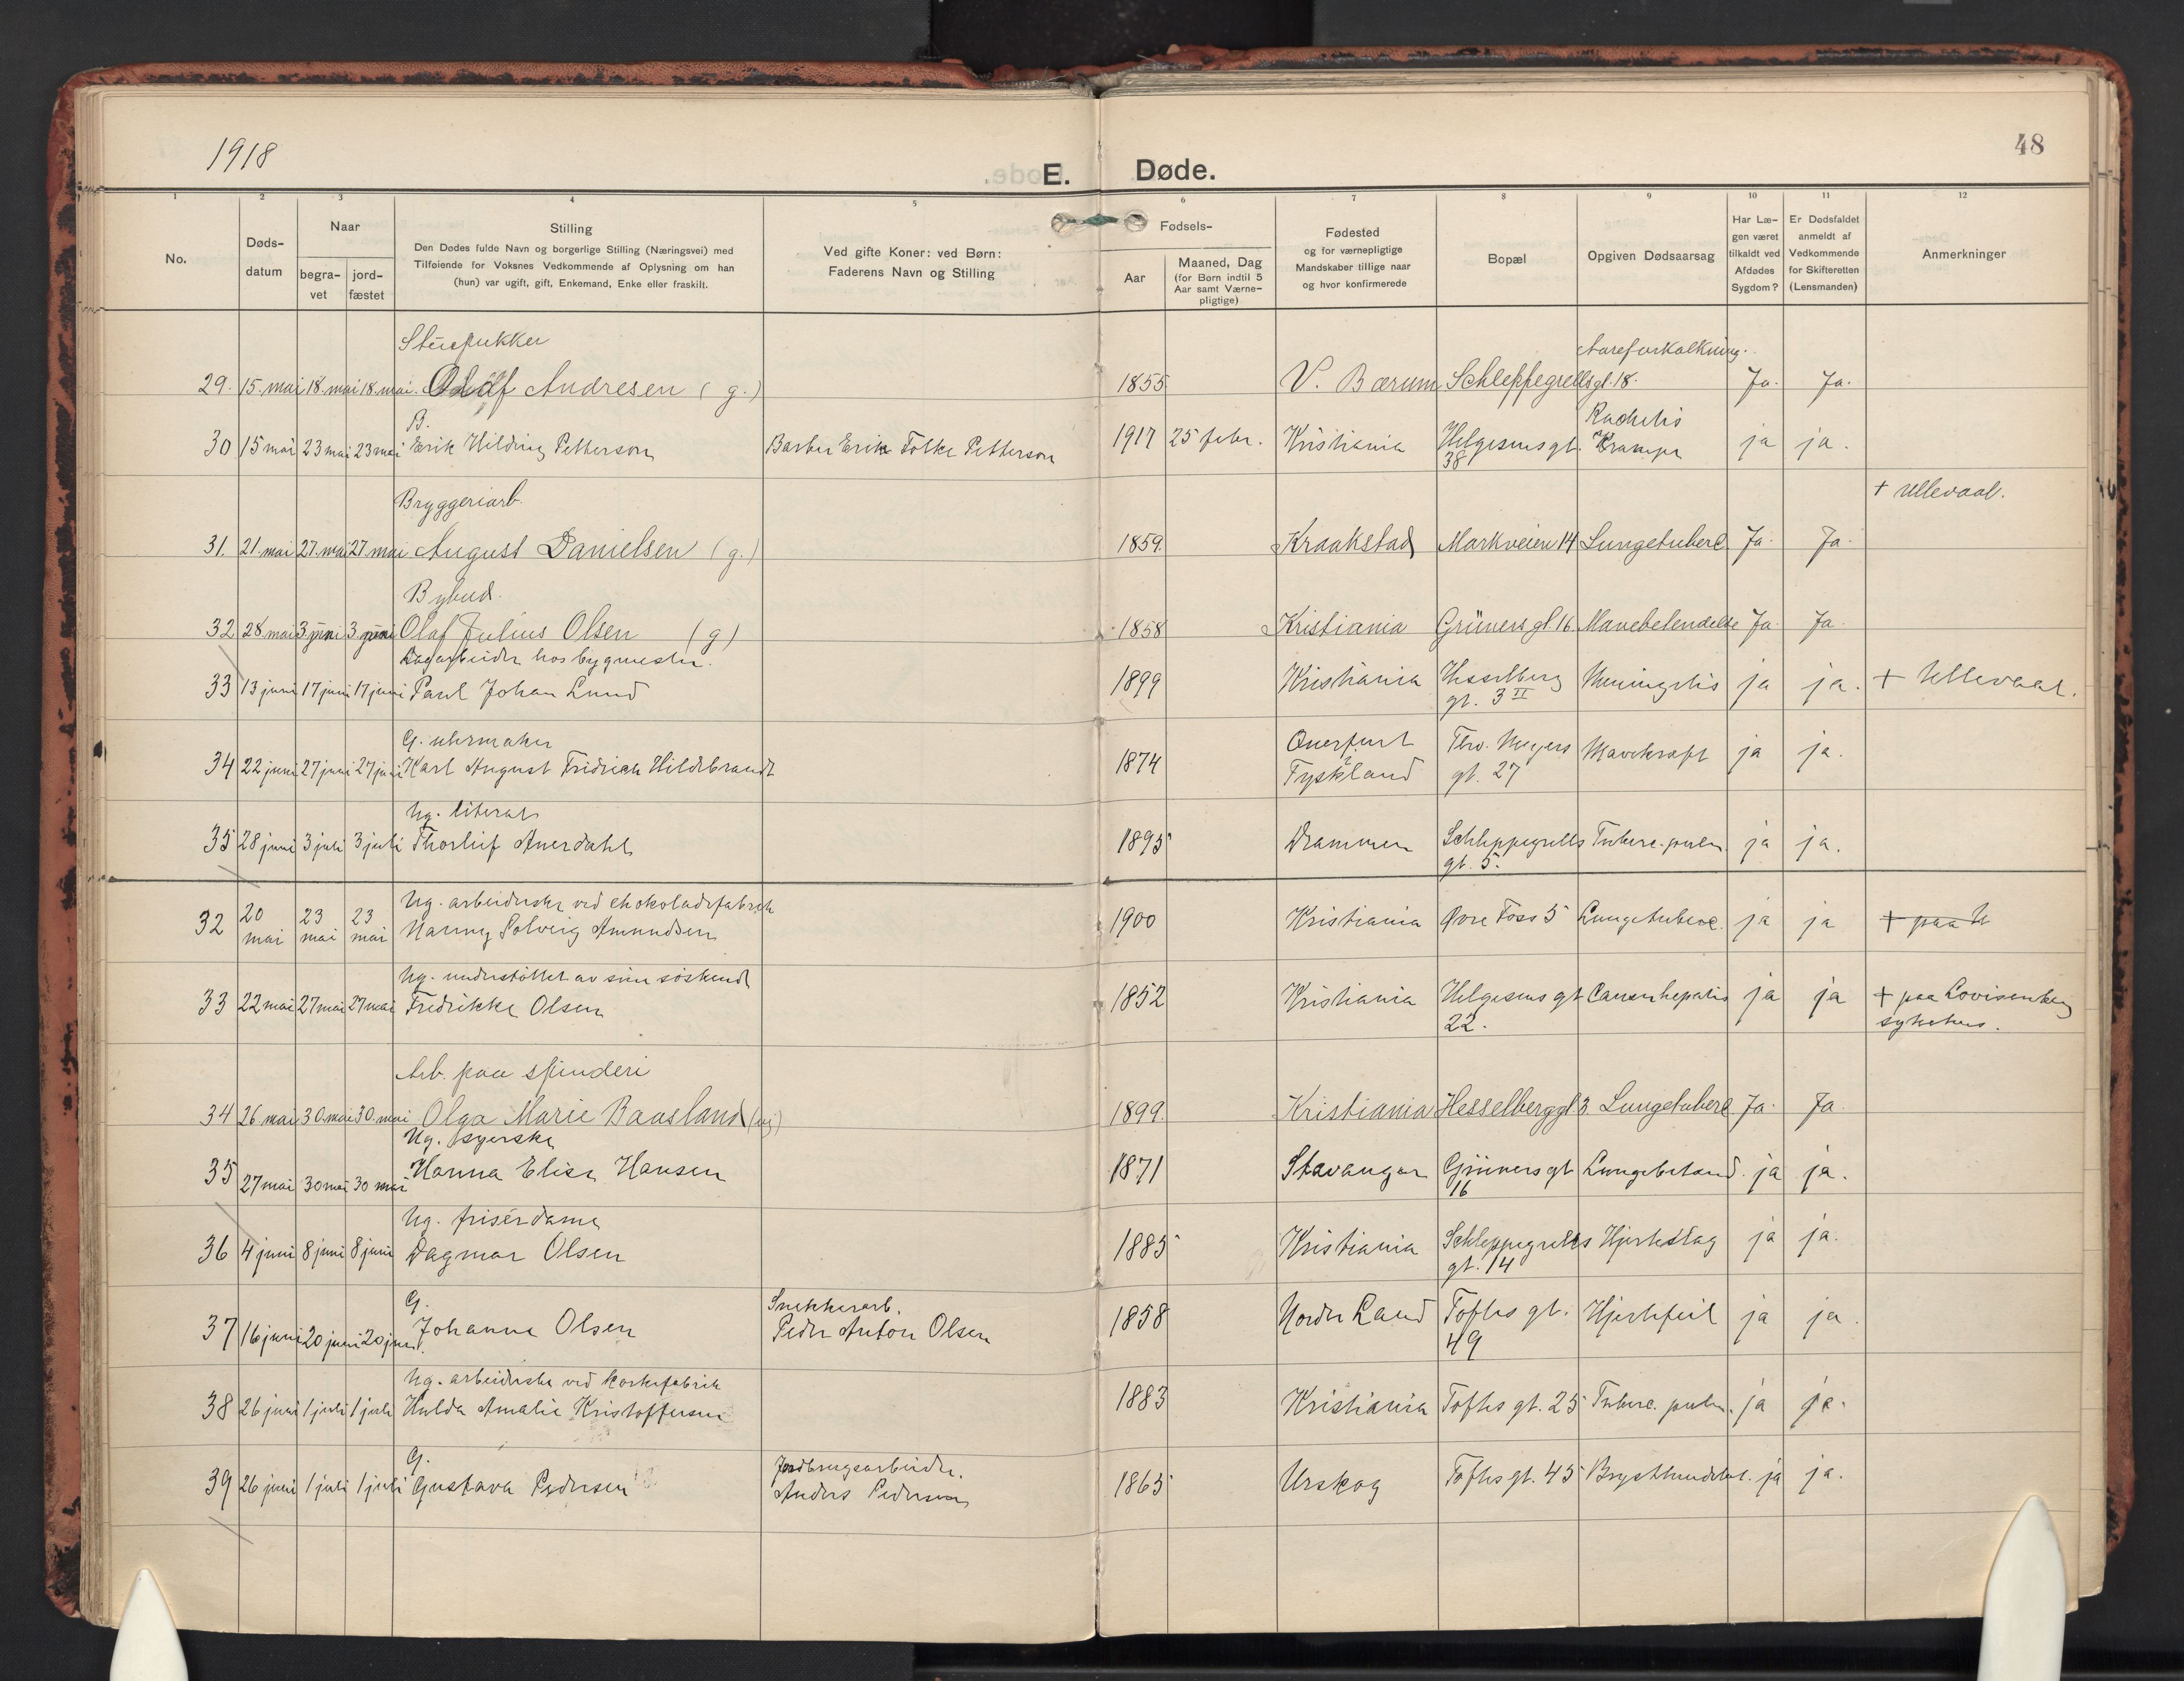 1918
48
E. Døde.
1 2 3 4 5 6 7 8 9 10 11 12
No.
Døds-
datum
Naar
begra-
vet
jord-
fæstet
Stilling
Den Dødes fulde Navn og borgerlige Stilling (Næringsvei) med
Tilføiende for Voksnes Vedkommende af Oplysning om han
(hun) var ugift, gift, Enkemand, Enke eller fraskilt.
Ved gifte Koner: ved Børn:
Faderens Navn og Stilling
Fødsels-
Aar
Maaned, Dag
(for Børn indtil 5
Aar samt Værne-
pligtige)
Fødested
og for værnepligtige
Mandskaber tillige naar
og hvor konfirmerede
Bopæl
Opgiven Dødsaarsag
Har Læ-
gen været
tilkaldt ved
Afdødes
Sygdom?
Er Dødsfaldet
anmeldt af
Vedkommende
for Skifteretten
(Lensmanden)
Anmerkninger
Stenpukker Aareforkalkning.
29. 15. mai 18. mai 18. mai. Olaf Andresen (g.) 1855 V. Bærum Schleppegrellsgt. 18. Ja. Ja.
B. Rachitis
30 15 mai 23 mai 23 mai Erik Hilding Petterson Barber Erik Folke Petterson 1917 25 febr. Kristiania Helgesens gt. Krampe ja ja.
38
Bryggeriarb. + Ullevaal.
31. 21. mai 27. mai 27. mai August Danielsen (g.) 1859. Kraakstad Markveien 14 Lungetuberc. Ja. Ja.
Bybud.
32 28. mai 3 juni 3. juni Olaf Julius Olsen (g) 1858 Kristiania Grüners gt. 16 Mavebetendelse Ja. Ja.
Lagarbeider hos bygmester.
33 13 juni 17 juni 17 juni Paul Johan Lund 1899 Kristiania Hesselberg Meningitis ja ja. + Ullevaal.
gt. 3 II
G. uhrmaker Querfurt Thv. Meyers
34 22 juni 27 juni 27 juni Karl August Fridrich Hildebrandt 1874 i Tyskland gt. 27 Mavekræft ja ja.
Ug. literat
35 28 juni 3 juli 3 juli Thorleif Auerdahl 1895 Drammen Schleppegrells Tuberc. pulm. ja ja.
gt. 5.
Ug. arbeiderske ved chokoladefabrik
32 20 mai 23 mai 23 mai Nanny Solveig Amundsen 1900 Kristiania Øvre Foss 5 Lungetuberc. ja ja + paa U
Ug. understøttet av sine søskend
33 22 mai 27 mai 27 mai Fredrikke Olsen 1852 Kristiania Helgesens gt Cancer hepatis ja ja + paa Lovisenberg
22. sykehus.
Arb. paa spinderi
34 26 mai 30. mai 30. mai Olga Marie Baasland (ug) 1899. Kristiania Hesselberggt 3. Lungetuberc. Ja. Ja.
Ug. syerske
35 27 mai 30 mai 30 mai Hanna Elise Hansen 1871 Stavanger Grüners gt Lungebetænd. ja ja.
16
Ug. frisérdame
36 4 juni 8 juni 8 juni Dagmar Olsen 1885 Kristiania Schleppegrells Hjerteslag ja ja.
gt. 14
G. Snekkerarb.
37 16 juni 20 juni 20 juni. Johanne Olsen Peder Anton Olsen 1858 Nordre Land Toftes gt. Hjertefeil ja ja.
49
Ug. arbeiderske ved korkefabrik
38 26 juni 1 juli 1 juli Hulda Amalie Kristoffersen 1883 Kristiania Toftes gt. 25 Tuberc. pulm. ja ja.
G. Jordbrugsarbeider.
39 26 juni 1 juli 1 juli Gustava Pedersen Anders Pedersen 1865 Urskog Toftes gt. 45 ja ja.